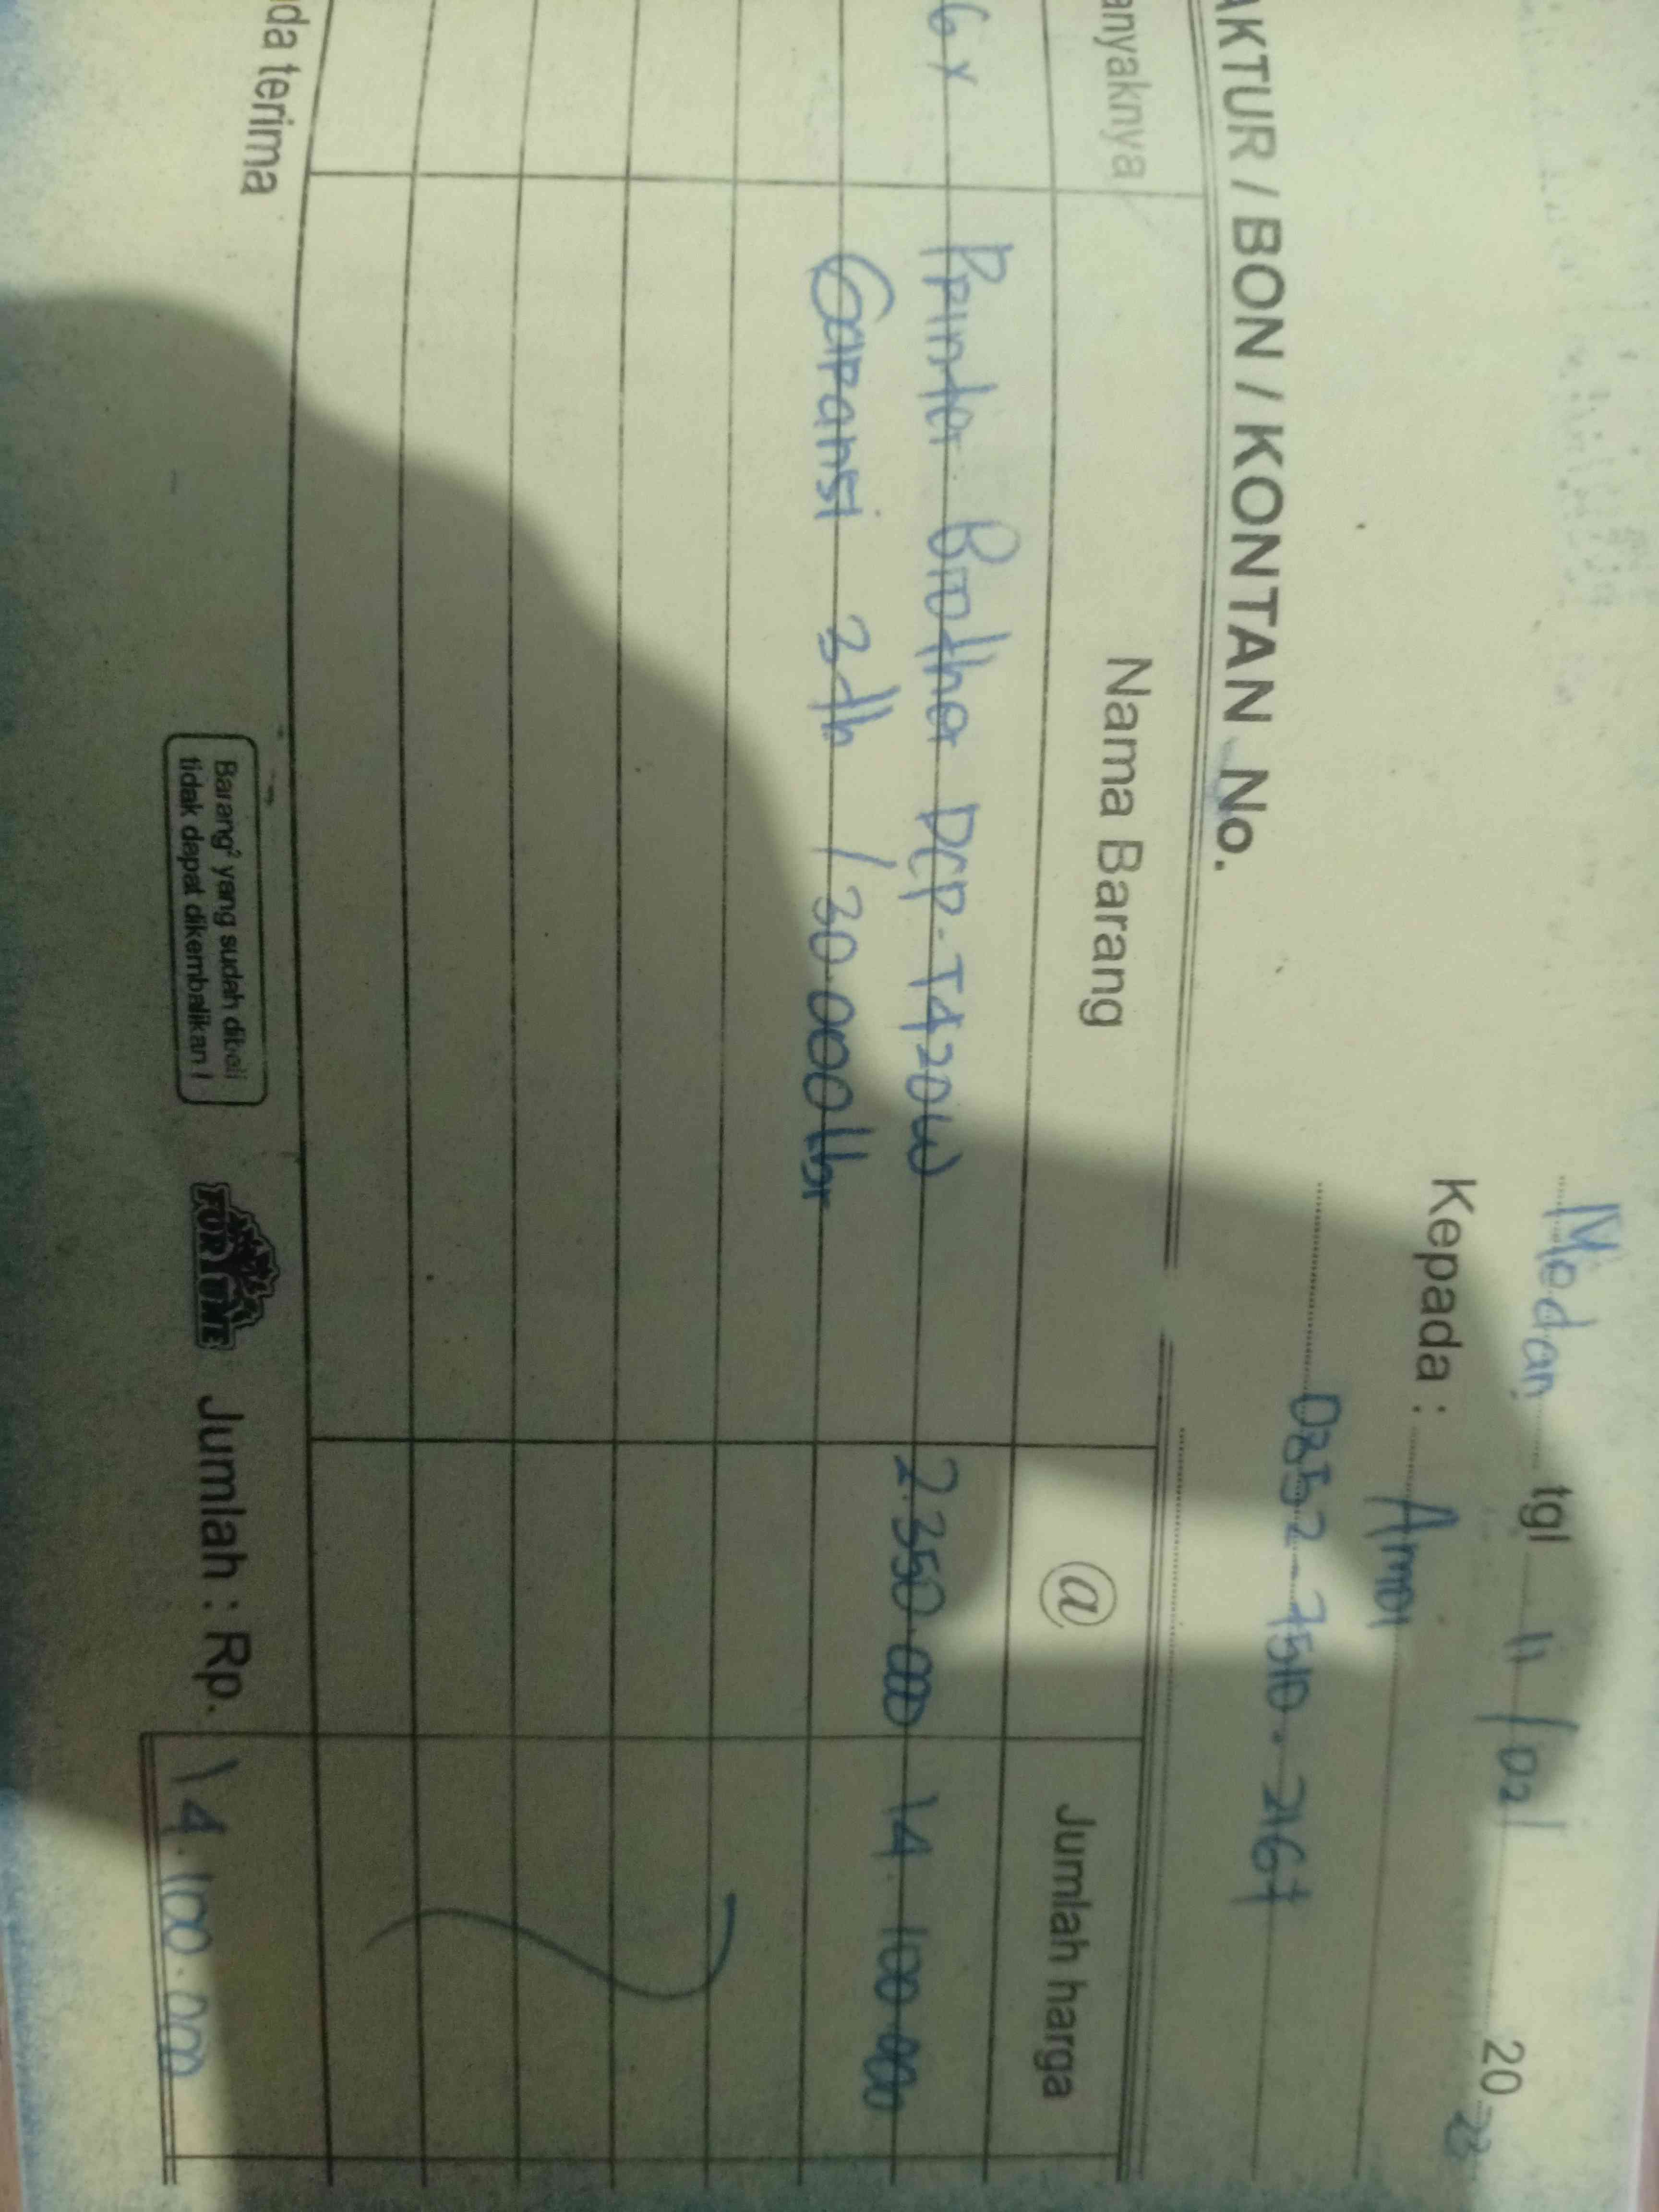 Medan tgl 11 / 02 / 20 23
Kepada : Amoi
0852-7510. 2167
AKTUR / BON / KONTAN No.
anyaknya Nama Barang @ Jumlah harga
6 x Printer Brother DCP-T420W 2.350.000 14.100.000
Garansi 3th / 30.000 lbr
da terima
Barang² yang sudah dibeli
tidak dapat dikembalikan !
FORTUNE
Jumlah : Rp. 14.100.000